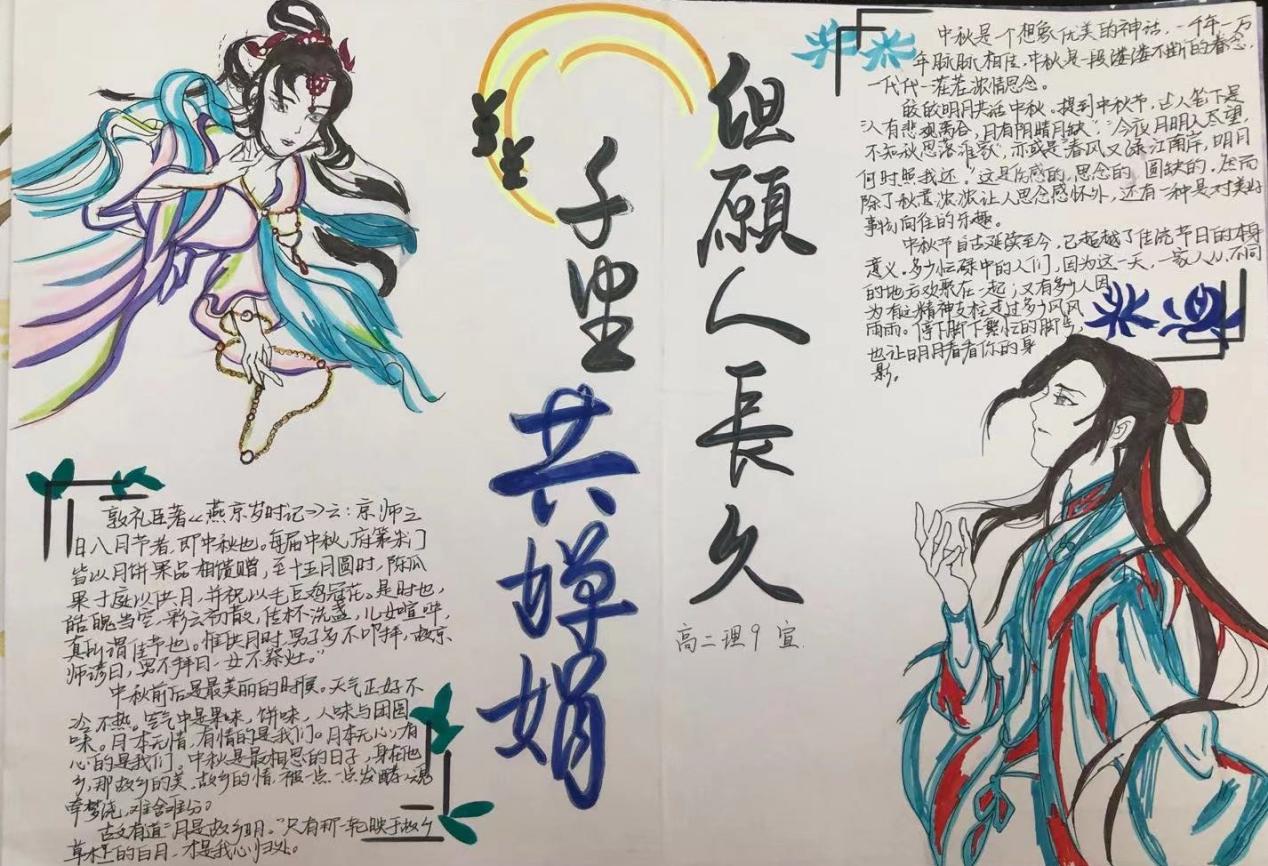 但願人長久
千里共婵娟
高二理9 宣.
中秋是个想象优美的神话,一千年一万
年脉脉相信,中秋是一段缕缕不断的眷念,
一代代一茬茬浓情思念。
皎皎明月共话中秋。提到中秋节,笔下是
"人有悲观离合,月有阴晴月缺","今夜月明人尽望,
不知秋思落谁家",亦或是"春风又绿江南岸,明月
何时照我还",这是伤感的,思念的,圆缺的,然而
除了秋意浓浓让人思念感怀外,还有一种是对美好
事物向往的乐趣。
中秋节自古延续至今,已超越了传统节日的本身
意义。多少忙碌中的人们,因为这一天,一家人从不同
的地方欢聚在一起;又有多少人因
为有这精神支柱走过多少风风
雨雨。停下脚下繁忙的脚步,
也让明月看看你的身
影。
敦礼臣著《燕京岁时记》云:京师之
曰八月节者,即中秋也。每届中秋,府第朱门
皆以月饼果品相馈赠,至十五月圆时,陈瓜
果于庭以供月,并祝以毛豆鸡冠花。是时也,
皓魄当空,彩云初散,传杯洗盏,儿女喧哗,
真所谓佳节也。惟供月时,男子多不叩拜,故京
师谚曰,男不拜月,女不祭灶。"
中秋前后是最美丽的时候。天气正好不
冷不热。空气中是果味,饼味,人味与团圆
味。月本无情,有情的是我们。月本无心,有
心的是我们。中秋是最相思的日子,身在他
乡,那故乡的美,故乡的情,被一点一点发酵,魂
牵梦绕,难舍难分。
古文有道"月是故乡明。"只有那一轮映于故乡
草木上的白月,才是我心归处。